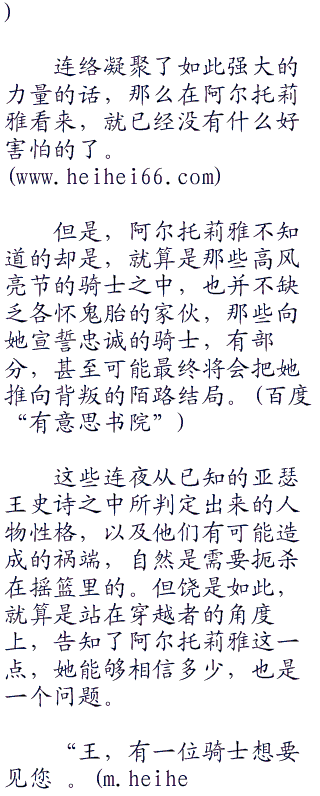 )
　　连络凝聚了如此强大的
力量的话，那么在阿尔托莉
雅看来，就已经没有什么好
害怕的了。
(www.heihei66.com)
　　但是，阿尔托莉雅不知
道的却是，就算是那些高风
亮节的骑士之中，也并不缺
乏各怀鬼胎的家伙，那些向
她宣誓忠诚的骑士，有部
分，甚至可能最终将会把她
推向背叛的陌路结局。(百度
“有意思书院”)
　　这些连夜从已知的亚瑟
王史诗之中所判定出来的人
物性格，以及他们有可能造
成的祸端，自然是需要扼杀
在摇篮里的。但饶是如此，
就算是站在穿越者的角度
上，告知了阿尔托莉雅这一
点，她能够相信多少，也是
一个问题。
　　“王，有一位骑士想要
见您 。(m.heihe